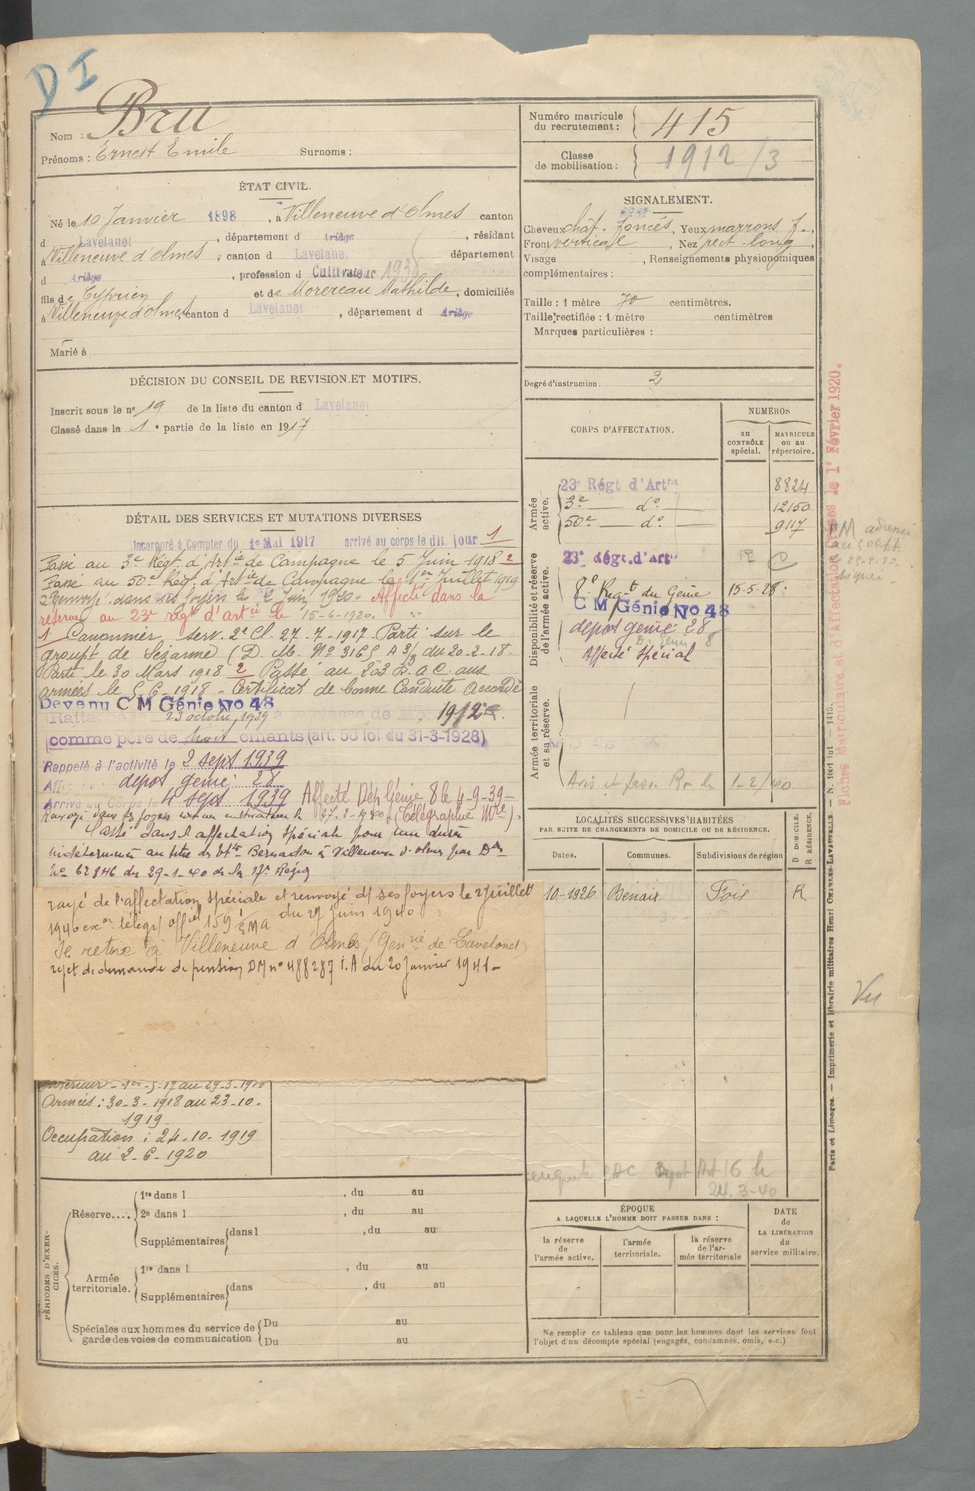 D I
Nom : Bru
Prénoms : Ernest Emile Surnoms :
Numéro matricule du recrutement : 415
Classe de mobilisation : 1912/3
ÉTAT CIVIL.
Né le 10 Janvier 1898, à Villeneuve d'Olmes canton
d Lavelanet, département d Ariège, résidant
à Villeneuve d'Olmes, canton d Lavelanet département
d Ariège, profession d Cultivateur 1938
fils de Cyprien et de Morereau Mathilde, domiciliés
à Villeneuve d'Olmes, canton d Lavelanet, département d Ariège
Marié à
SIGNALEMENT.
Cheveux chât. foncés, Yeux marrons f.,
Front vertical, Nez rect. long,
Visage , Renseignements physionomiques
complémentaires :
Taille : 1 mètre 70 centimètres.
Taille rectifiée : 1 mètre centimètres
Marques particulières :
Degré d'instruction : 2
DÉCISION DU CONSEIL DE REVISION ET MOTIFS.
Inscrit sous le nº 19 de la liste du canton d Lavelanet
Classé dans la 1e partie de la liste en 1917
DÉTAIL DES SERVICES ET MUTATIONS DIVERSES
Incorporé à Compter du 1er Mai 1917 arrivé au corps le dit jour 1
Passé au 3e Régt. d'Artie de Campagne le 5 Juin 1918 2
Passé au 50e Régt. d'Artie de Campagne le 1er Juillet 1919
Renvoyé dans ses foyers le 2 Juin 1920. Affecté dans la
réserve au 23e régt d'artie le 15-6-1920.
1 Canonnier serv. 2e Cl. 27-7-1917. Parti sur le
groupt de Sézanne (D. M. Nº 3165 A 3/3 du 20-2-18
Parti le 30 Mars 1918 2 Passé au 203 R.a.C. aux
armées le 5-6-1918 - Certificat de bonne Conduite accordé
Devenu C M Génie No 48
23 octobre 1939 1912
comme père de trois enfants (art. 58 loi du 31-3-1928)
Rappelé à l'activité le 2 sept 1939
Aff. depot genie 28
Arrivé au Corps le 4 sept 1939 Affecté Dép Génie 8 le 4-9-39-
(Télégraphie Mre).
Passé dans l'affectation spéciale pour une durée
indéterminée au titre des Etts Bernadou à Villeneuve d'olmes par Don
Nº 62846 du 29-1-40 de la 17e Région
rayé de l'affectation spéciale et renvoyé ds ses foyers le 2 juillet
1940 exon télég. officiel 159 1/EMA du 29 Juin 1940
Se retire à Villeneuve d'Olmes (Genrie de Lavelanet)
rejet de demande de pension DM nº 488287 I.A du 20 Janvier 1941-
Intérieur - 1er-5-17 au 29-3-1918
Armées : 30-3-1918 au 23-10-
1919
Occupation : 24-10-1919
au 2-6-1920
CORPS D'AFFECTATION.
NUMÉROS
AU CONTRÔLE spécial.
MATRICULE OU AU répertoire.
Armée active.
23e Régt d'Artrie 8824
3e do 12150
50e do 9117
Disponibilité et réserve de l'armée active.
23e régt. d'Artie
8e Regt du Génie 15-5-28
C M Génie No 48
depot genie 28
Affecté spécial
Armée territoriale et sa réserve.
1-2/40
LOCALITÉS SUCCESSIVES HABITÉES
PAR SUITE DE CHANGEMENTS DE DOMICILE OU DE RÉSIDENCE.
Dates. Communes. Subdivisions de région
D DOMICILE.
R RÉSIDENCE.
10-1926 Bénaix Foix R
24.3-40
PÉRIODES D'EXERCICES.
Réserve....
1re dans l , du au
2e dans l , du au
Supplémentaires dans l , du au
Armée territoriale.
1re dans l , du au
Supplémentaires dans , du au
Spéciales aux hommes du service de garde des voies de communication
Du au
Du au
ÉPOQUE
A LAQUELLE L'HOMME DOIT PASSER DANS :
la réserve de l'armée active.
l'armée territoriale.
la réserve de l'armée territoriale
DATE de LA LIBÉRATION du service militaire.
Ne remplir ce tableau que pour les hommes dont les services font
l'objet d'un décompte spécial (engagés, condamnés, omis, e.c.)
Fiches Matriculaire et d'Affectation le 1er Février 1920.
Vu
Paris et Limoges. — Imprimerie et librairie militaires Henri CHARLES-LAVAUZELLE.